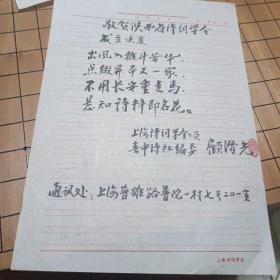 敬贺陕西省诗词学会
成立志庆
出风入雅斗芳华，
点缀昇平又一家。
不用长安重走马，
忽知诗料即名花。
上海诗词学会会员
春申诗社编委 顾
通讯处：上海普雄路普院一村七号二〇一室
上海诗词学会